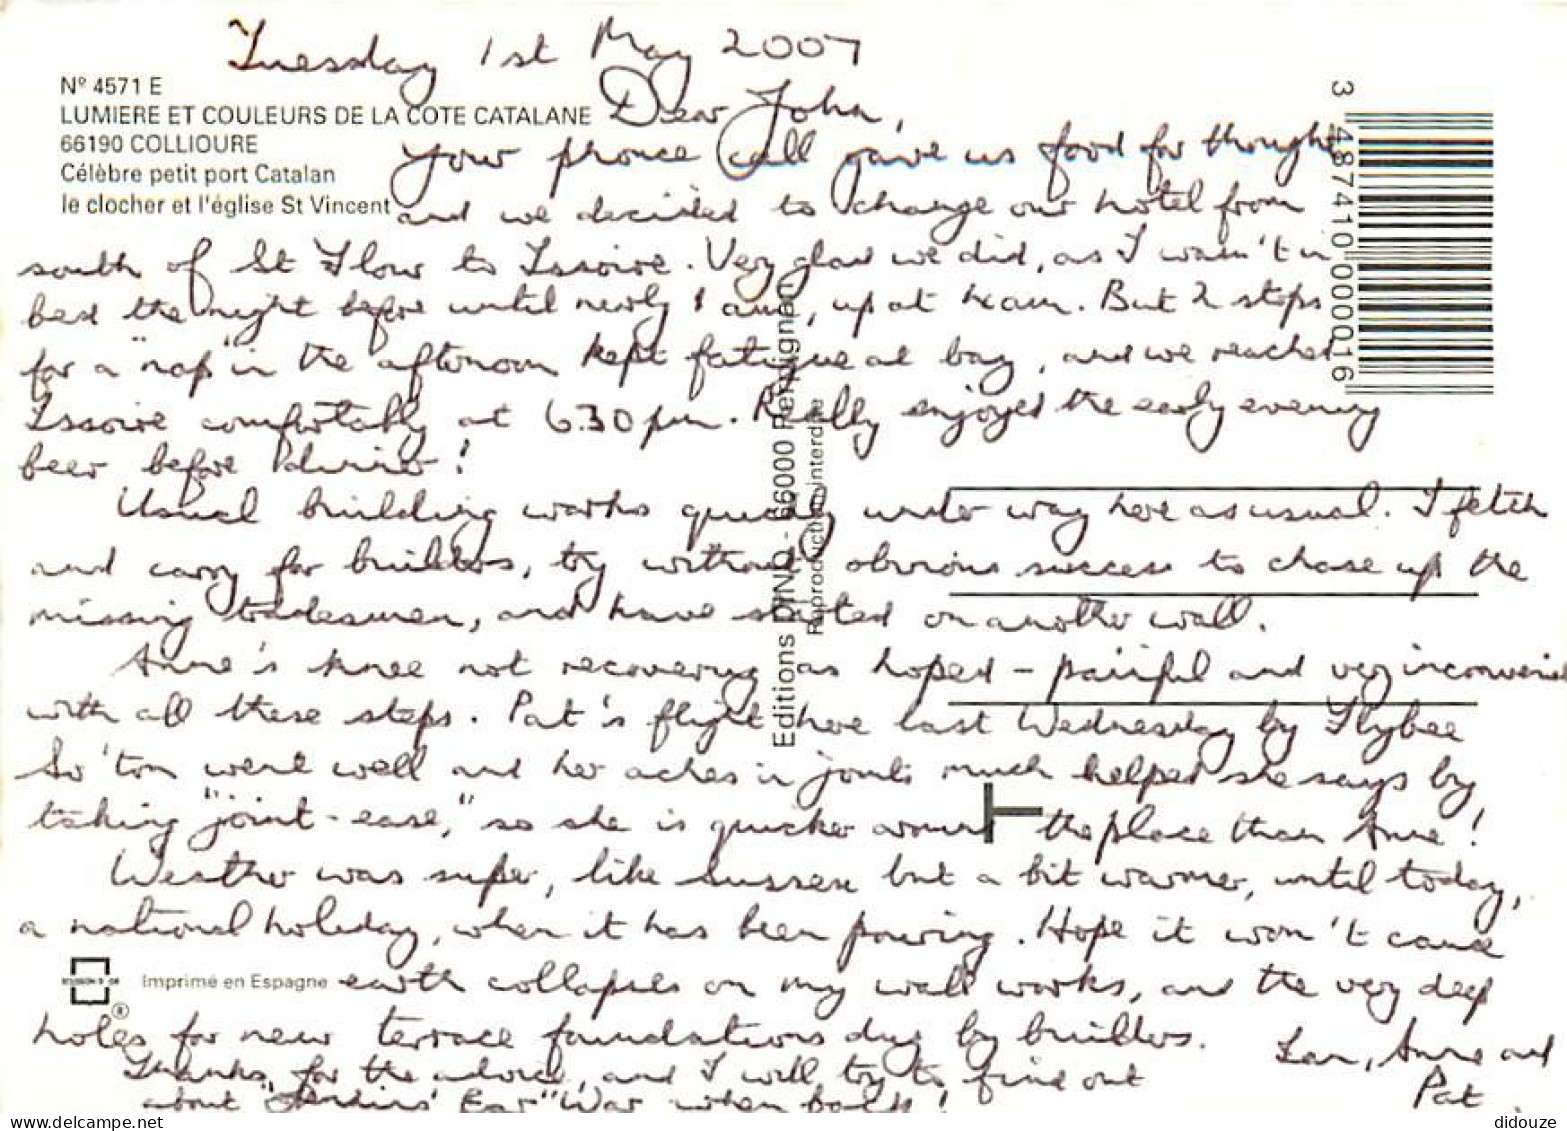 Tuesday 1st May 2007
Nº 4571 E
LUMIERE ET COULEURS DE LA COTE CATALANE
66190 COLLIOURE
Célèbre petit port Catalan
le clocher et l'église St Vincent
Dear John,
Your phone call gave us food for thought
and we decided to change our hotel from
south of St Flour to Issoire. Very glad we did, as I wasn't in
bed the night before until nearly 1 am, up at 4 am. But 2 stops
for a "nap" in the afternoon kept fatigue at bay, and we reached
Issoire comfortably at 6.30 pm. Really enjoyed the early evening
beer before dinner!
Usual building works quickly under way here as usual. I fetch
and carry for builders, try without obvious success to chase up the
missing tradesmen, and have started on another wall.
Anne's knee not recovering as hoped – painful and very
with all these steps. Pat's flight here last Wednesday by Flybee
So'ton went well and her aches in joints much helped she says by
taking "joint-ease," so she is quicker around the place than Anne!
Weather was super, like Sussex but a bit warmer, until today,
a national holiday, when it has been pouring. Hope it won't cause
earth collapses on my wall works, and the very deep
holes for new terrace foundations dug by builders.
Ian, Anne and
Pat
Thanks for the advice, and I will try to find out
about "Jenkins' Ear" War when back!
Editions DINO - 66000 Perpignan
Reproduction interdite
3 487410 000016
Imprimé en Espagne
®
didouze